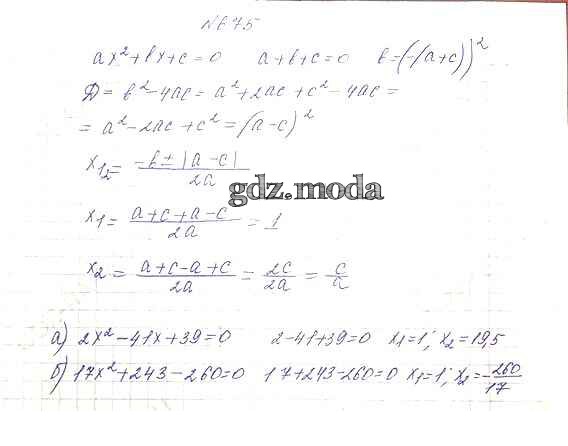 №675
ax²+bx+c=0 a+b+c=0 b=(-(a+c))²
D=b²-4ac=a²+2ac+c²-4ac=
=a²-2ac+c²=(a-c)²
x₁,₂=(-b±|a-c|)/2a
gdz.moda
x₁=(a+c+a-c)/2a=1
x₂=(a+c-a+c)/2a=2c/2a=c/a
а) 2x²-41x+39=0 2-41+39=0 x₁=1; x₂=19,5
б) 17x²+243-260=0 17+243-260=0 x₁=1; x₂=-260/17